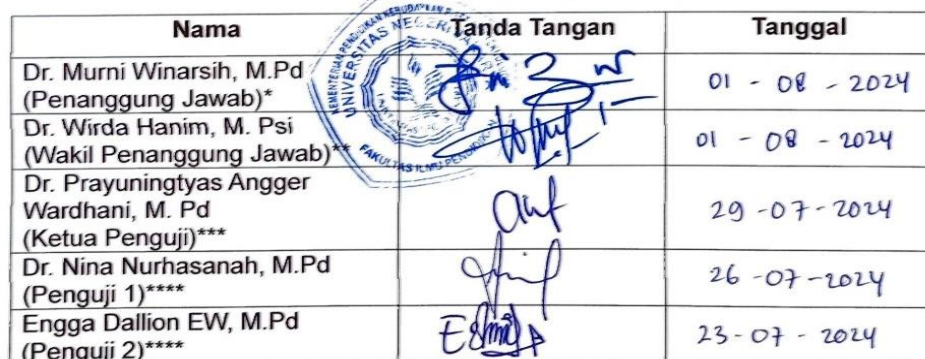 Nama Tanda Tangan Tanggal
Dr. Murni Winarsih, M.Pd
(Penanggung Jawab)* 01 - 08 - 2024
Dr. Wirda Hanim, M. Psi
(Wakil Penanggung Jawab)** 01 - 08 - 2024
Dr. Prayuningtyas Angger
Wardhani, M. Pd 29 - 07 - 2024
(Ketua Penguji)***
Dr. Nina Nurhasanah, M.Pd
(Penguji 1)**** 26 - 07 - 2024
Engga Dallion EW, M.Pd
(Penguji 2)**** 23 - 07 - 2024
UNIVERSITAS NEGERI
FAKULTAS ILMU PENDIDIKAN